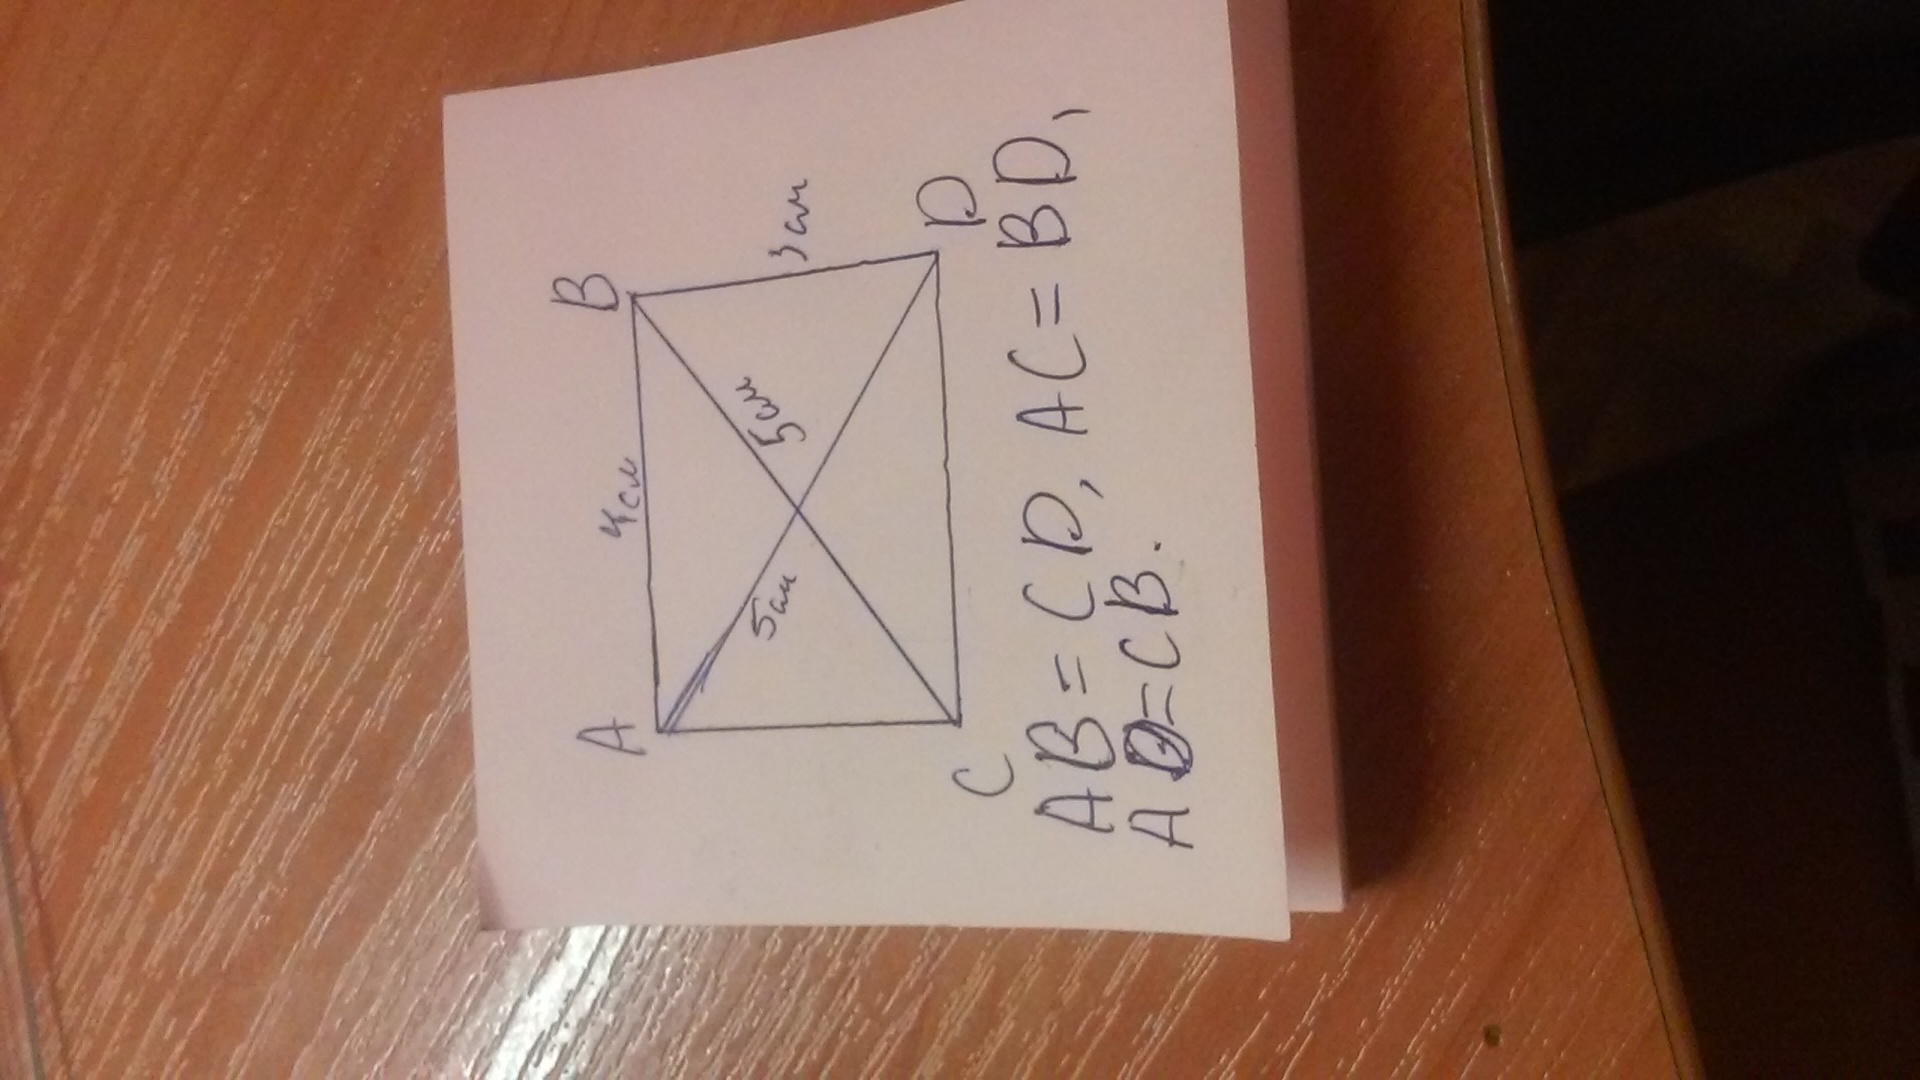 A B
4см
3см
5см 5см
C D
AB = CD, AC = BD,
AD = CB.